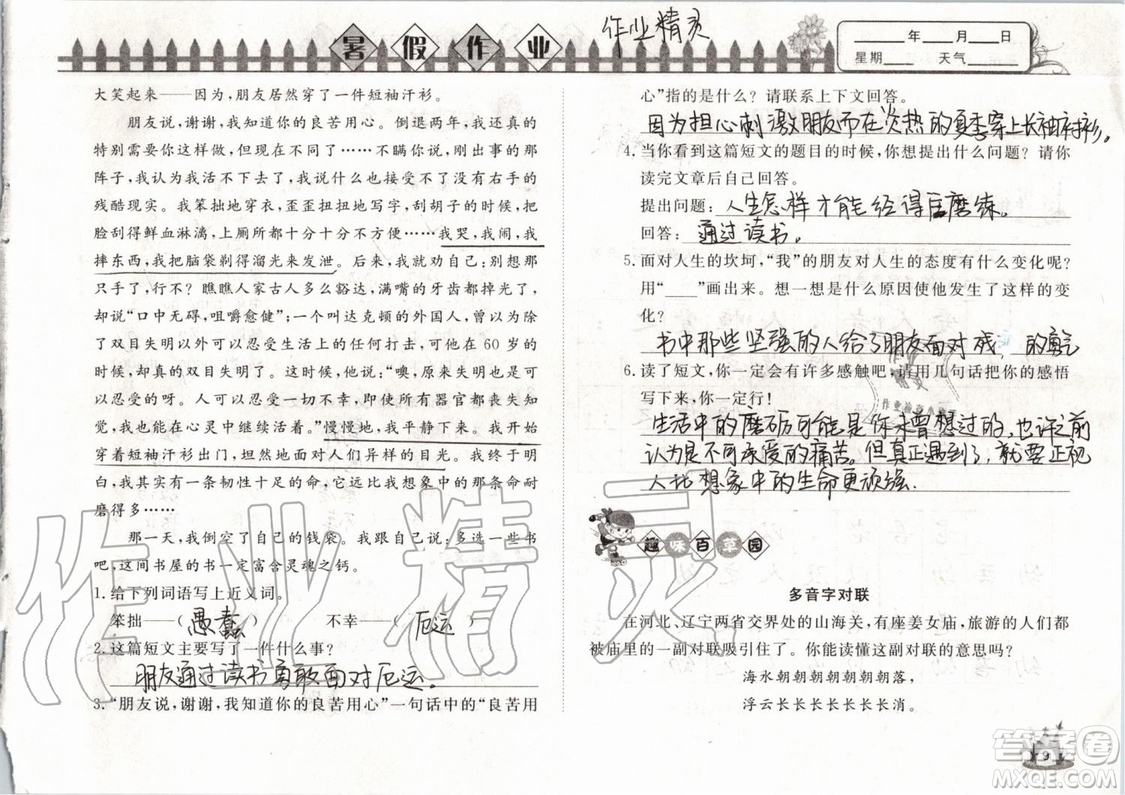 暑假作业
作业精灵
____年____月____日
星期____ 天气____
大笑起来——因为,朋友居然穿了一件短袖汗衫。
朋友说,谢谢,我知道你的良苦用心。倒退两年,我还真的
特别需要你这样做,但是现在不同了……不瞒你说,刚开始的那
阵子,我认为我活不下去了,因为我不能接受没有了右手的
残酷现实。我笨拙地穿衣,歪歪扭扭地写字,刮胡子的时候,把
脸刮得鲜血淋漓,上厕所都十分十分不方便……我哭,我闹,我
摔东西,我把脑袋剃得溜光来发泄。后来,我就劝自己:别想那
只手了! 瞧瞧人家古人多么豁达,满嘴的牙齿都掉光了,
却说“口中无碍,咀嚼愈健”;一个叫达克顿的外国人,假想除了
双目失明以外可以忍受生活上的任何打击,可他在 60 岁的
时候,却真的双目失明了。他说:“噢,原来失明也是可以
忍受的呀。人可以忍受一切不幸,即使所有器官都丧失知
觉,我也能在心灵中继续活着。”慢慢地,我平静下来。我开始
穿着短袖汗衫出门,坦然地面对人们异样的目光。我终于明
白,其实我有一条韧性十足的命,它远比我想象中的那条命耐
磨得多……
那一天,我倒空了自己的钱袋。我跟朋友说,多选一些书
吧,这间书屋的书一定富含灵魂之钙。
1. 给下列词语写上近义词。
笨拙——( 愚蠢 ) 不幸——( 厄运 )
2. 这篇短文主要写了一件什么事?
朋友通过读书勇敢面对厄运。
3. “朋友说,谢谢,我知道你的良苦用心”一句话中的“良苦用
心”指的是什么? 请联系上下文回答。
因为担心刺激朋友而在炎热的夏季穿上长袖衬衫。
4. 当你看到这篇短文的题目的时候,你想提出什么问题? 请你
读完文章后自己回答。
提出问题: 人生怎样才能经得巨磨练。
回答: 通过读书。
5. 面对人生的坎坷,“我”的朋友对人生的态度有什么变化?
用“____”画出来。想一想是什么原因使他发生了这样的变
化?
书中那些坚强的人给了朋友面对残 的勇气
6. 读了短文,你一定会有许多感触吧,请用几句话把你的感悟
写下来,你一定行!
生活中的磨砺可能是你未曾想过的,也许之前
认为是不可承受的痛苦。但真正遇到了,就要正视
人比想象中的生命更顽强.
趣味百草园
多音字对联
在河北、辽宁两省交界处的山海关,有座姜女庙,旅游的人们都
被庙里的一副对联吸引住了。你能读懂这副对联的意思吗?
海水朝朝朝朝朝朝朝落,
浮云长长长长长长长消。
9
作业精灵
答案卷
MXQE.COM